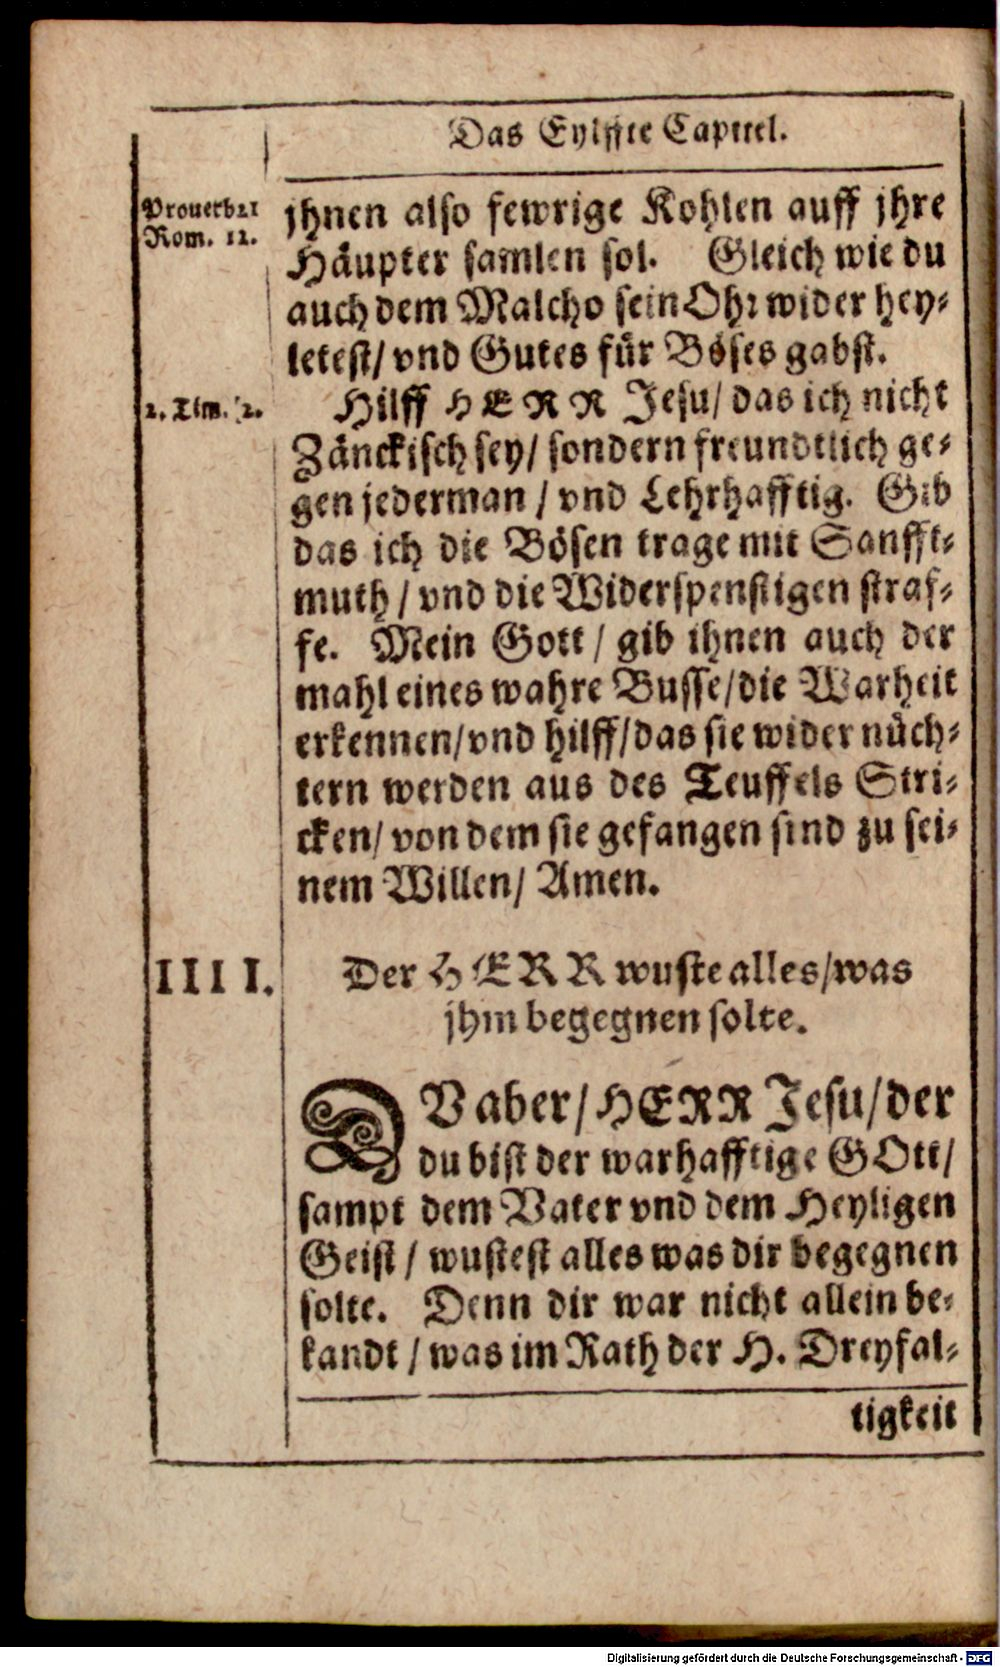 Das Eylffte Capittel.
Prouerb 21
Rom. 12.
jhnen also fewrige Kohlen auff jhre
Häupter samlen sol. Gleich wie du
auch dem Malcho sein Ohr wider hey-
letest/ vnd Gutes für Böses gabst.
2. Tim. 2.
Hilff HERR Jesu/ das ich nicht
Zänckisch sey/ sondern freundtlich ge-
gen jederman / vnd Lehrhafftig. Gib
das ich die Bösen trage mit Sanfft-
muth / vnd die Widerspenstigen straf-
fe. Mein Gott / gib ihnen auch der
mahl eines wahre Busse/die Warheit
erkennen/vnd hilff/das sie wider nüch-
tern werden aus des Teuffels Stri-
cken/ von dem sie gefangen sind zu sei-
nem Willen/ Amen.
IIII.
Der HERR wuste alles/was
jhm begegnen solte.
DV aber/HERR Jesu/der
du bist der warhafftige GOtt/
sampt dem Vater vnd dem Heyligen
Geist / wustest alles was dir begegnen
solte. Denn dir war nicht allein be-
kandt / was im Rath der H. Dreyfal-
tigkeit
Digitalisierung gefördert durch die Deutsche Forschungsgemeinschaft - DFG